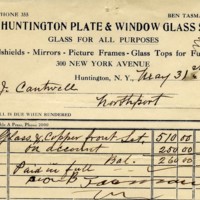 PHONE 353 BEN TASM
HUNTINGTON PLATE & WINDOW GLASS
GLASS FOR ALL PURPOSES
dshields - Mirrors - Picture Frames - Glass Tops for Fu
300 NEW YORK AVENUE
Huntington, N. Y., May 31
J. Cantwell
Northport
LL IS DUE WHEN RENDERED
Glass & Copper front Set 510.00
on account 250.00
Bal. 260.00
Paid in full